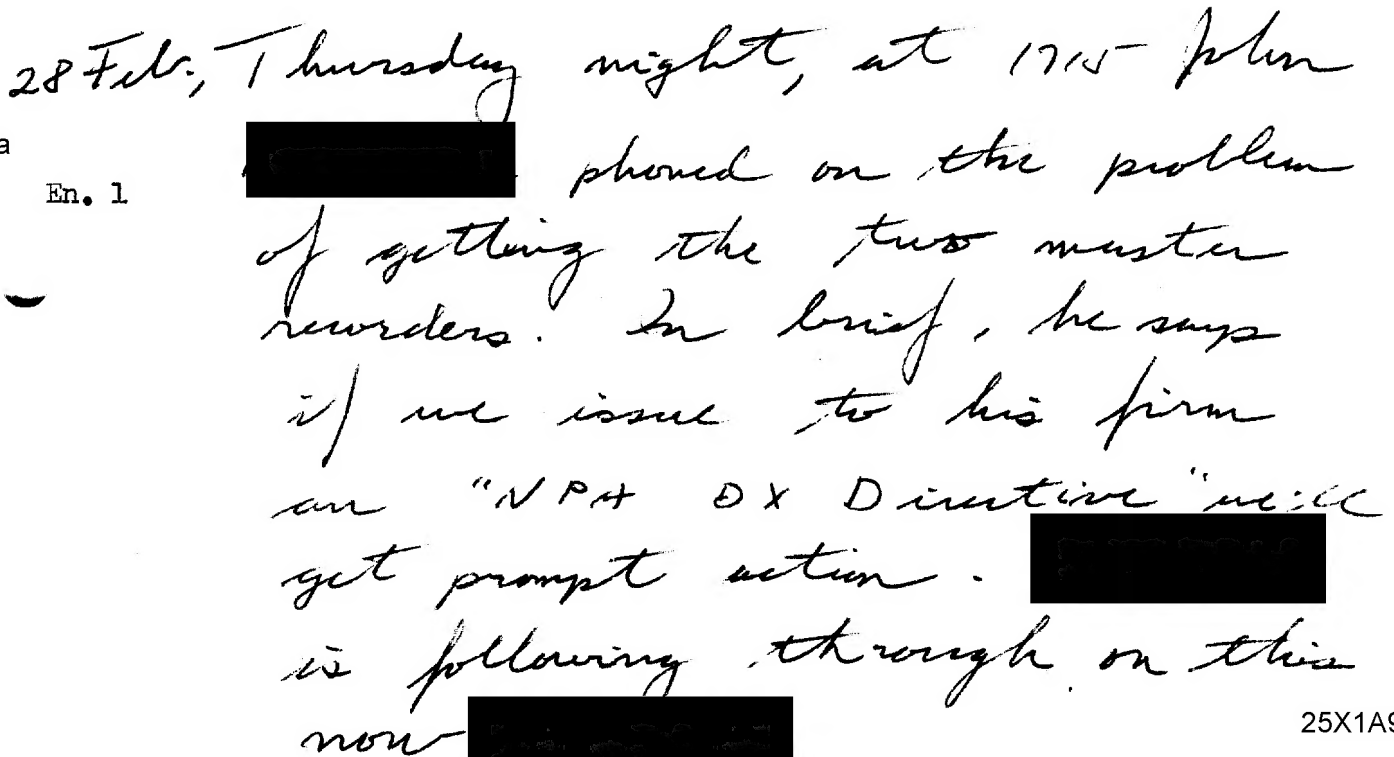 28 Feb., Thursday night, at 1715 John
a
phoned on the problem
En. 1
of getting the two master
recorders. In brief, he says
if we issue to his firm
an "NPA DX Directive" we'll
get prompt action.
is following through on this
now
25X1A9